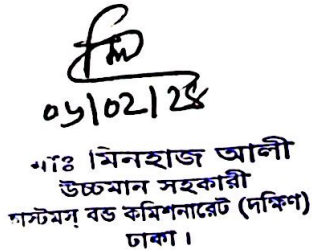 ০৬/০২/২৫
মিনহাজ আলী
উচ্চমান সহকারী
কাস্টমস্ বন্ড কমিশনারেট (দক্ষিণ)
ঢাকা।